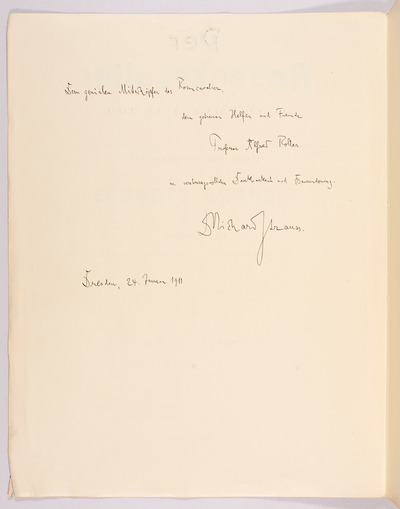 Der
Dem genialen Mitschöpfer des Rosencavalier
dem getreuen Helfer und Freunde
Professor Alfred Roller
in Dankbarkeit und Bewunderung.
DRichard Strauss.
Dresden, 24. Januar 1911